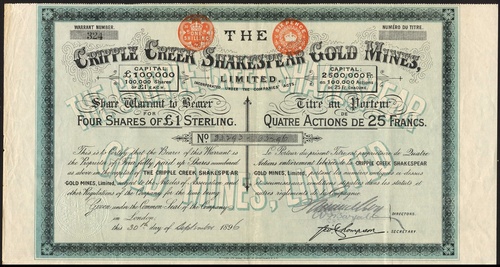 WARRANT NUMBER.
324
THE
NUMÉRO DU TITRE.
CRIPPLE CREEK SHAKESPEAR GOLD MINES,
LIMITED.
INCORPORATED UNDER THE COMPANIES' ACTS
CAPITAL
£100,000
100,000 Shares
OF £1 EACH.
CAPITAL
2,500,000 Fr.
100,000 ACTIONS
DE 25 Fr. CHACUNE.
Share Warrant to Bearer
FOR
FOUR SHARES OF £1 STERLING.
Titre au Porteur
DE
QUATRE ACTIONS DE 25 FRANCS.
No
This is to Certify that the Bearer of this Warrant is
the Proprietor of Four fully paid up Shares numbered
as above in THE CRIPPLE CREEK SHAKESPEAR
GOLD MINES, LIMITED, subject to the Articles of Association and
other Regulations of the Company for the time being.
Given under the Common Seal of the Company
in London,
this 30th day of September 1896
Le Porteur du présent Titre est propriétaire de Quatre
Actions entièrement libérées de la CRIPPLE CREEK SHAKESPEAR
GOLD MINES, LIMITED,
DIRECTORS.
Geo Thompson
SECRETARY